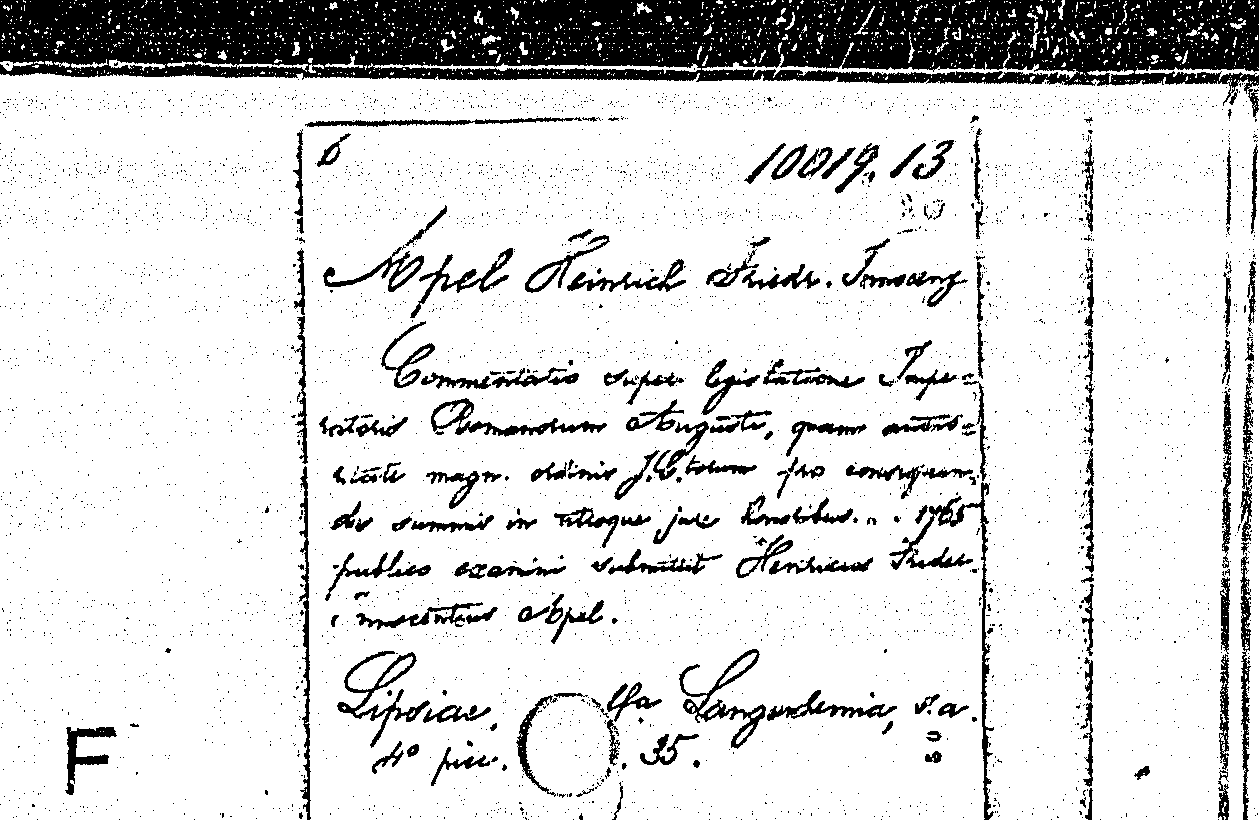 6
10019.13
Apel Heinrich Friedr. Innocenz
Commentatio super legislatione Impe=
ratoris Romanorum Augusti, quam auto=
ritate magn. ordinis J.C.torum pro consequen-
dis summis in utroque jure honoribus... 1765
publico examini submittit Henricus Frider.
Innocentius Apel.
Lipsiae, Langenhemia, s.a.
4° 35.
F